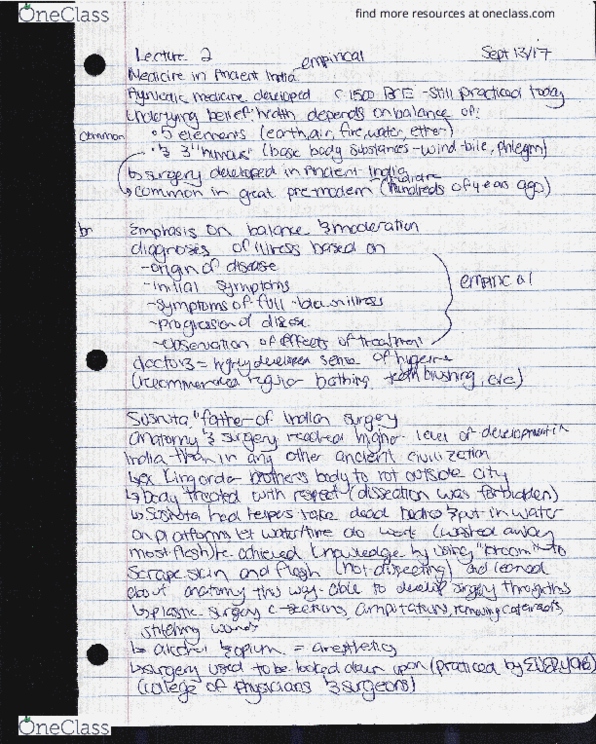 OneClass
find more resources at oneclass.com
Lecture 2
empirical
Sept 13/17
Medicine in Ancient India
Ayurvedic medicine developed 1500 BCE - still practiced today
Underlying belief health depends on balance of:
common
• 5 elements (earth, air, fire, water, ether)
• 3 "humours" (base body substances - wind - bile, phlegm)
↳ surgery developed in Ancient India
↳ common in great pre modern (hundreds of years ago)
Emphasis on balance & moderation
diagnoses of illness based on
- origin of disease
- initial symptoms
- symptoms of full illness
empirical
- progression of disease
- observation of effects of treatment
doctors = highly developed sense of hygiene
(recommended regular bathing, teeth brushing, etc)
Susruta, "father of Indian surgery
anatomy & surgery reached higher level of development in
India than in any other ancient civilization
↳ ex King order brothers body to rot outside city
↳ body treated with respect (dissection was forbidden)
↳ Susruta had helpers take dead bodies & put in water
on platforms let water/time do work (wasted away
most flesh) achieved knowledge by using "broom" to
scrape skin and flesh (not dissecting) and learned
about anatomy this way able to develop surgery through this
↳ plastic surgery c-sections, amputations, removing cataracts,
stitching wounds
↳ alcohol & opium = anesthetics
↳ surgery used to be looked down upon (practiced by
(college of physicians & surgeons)
OneClass